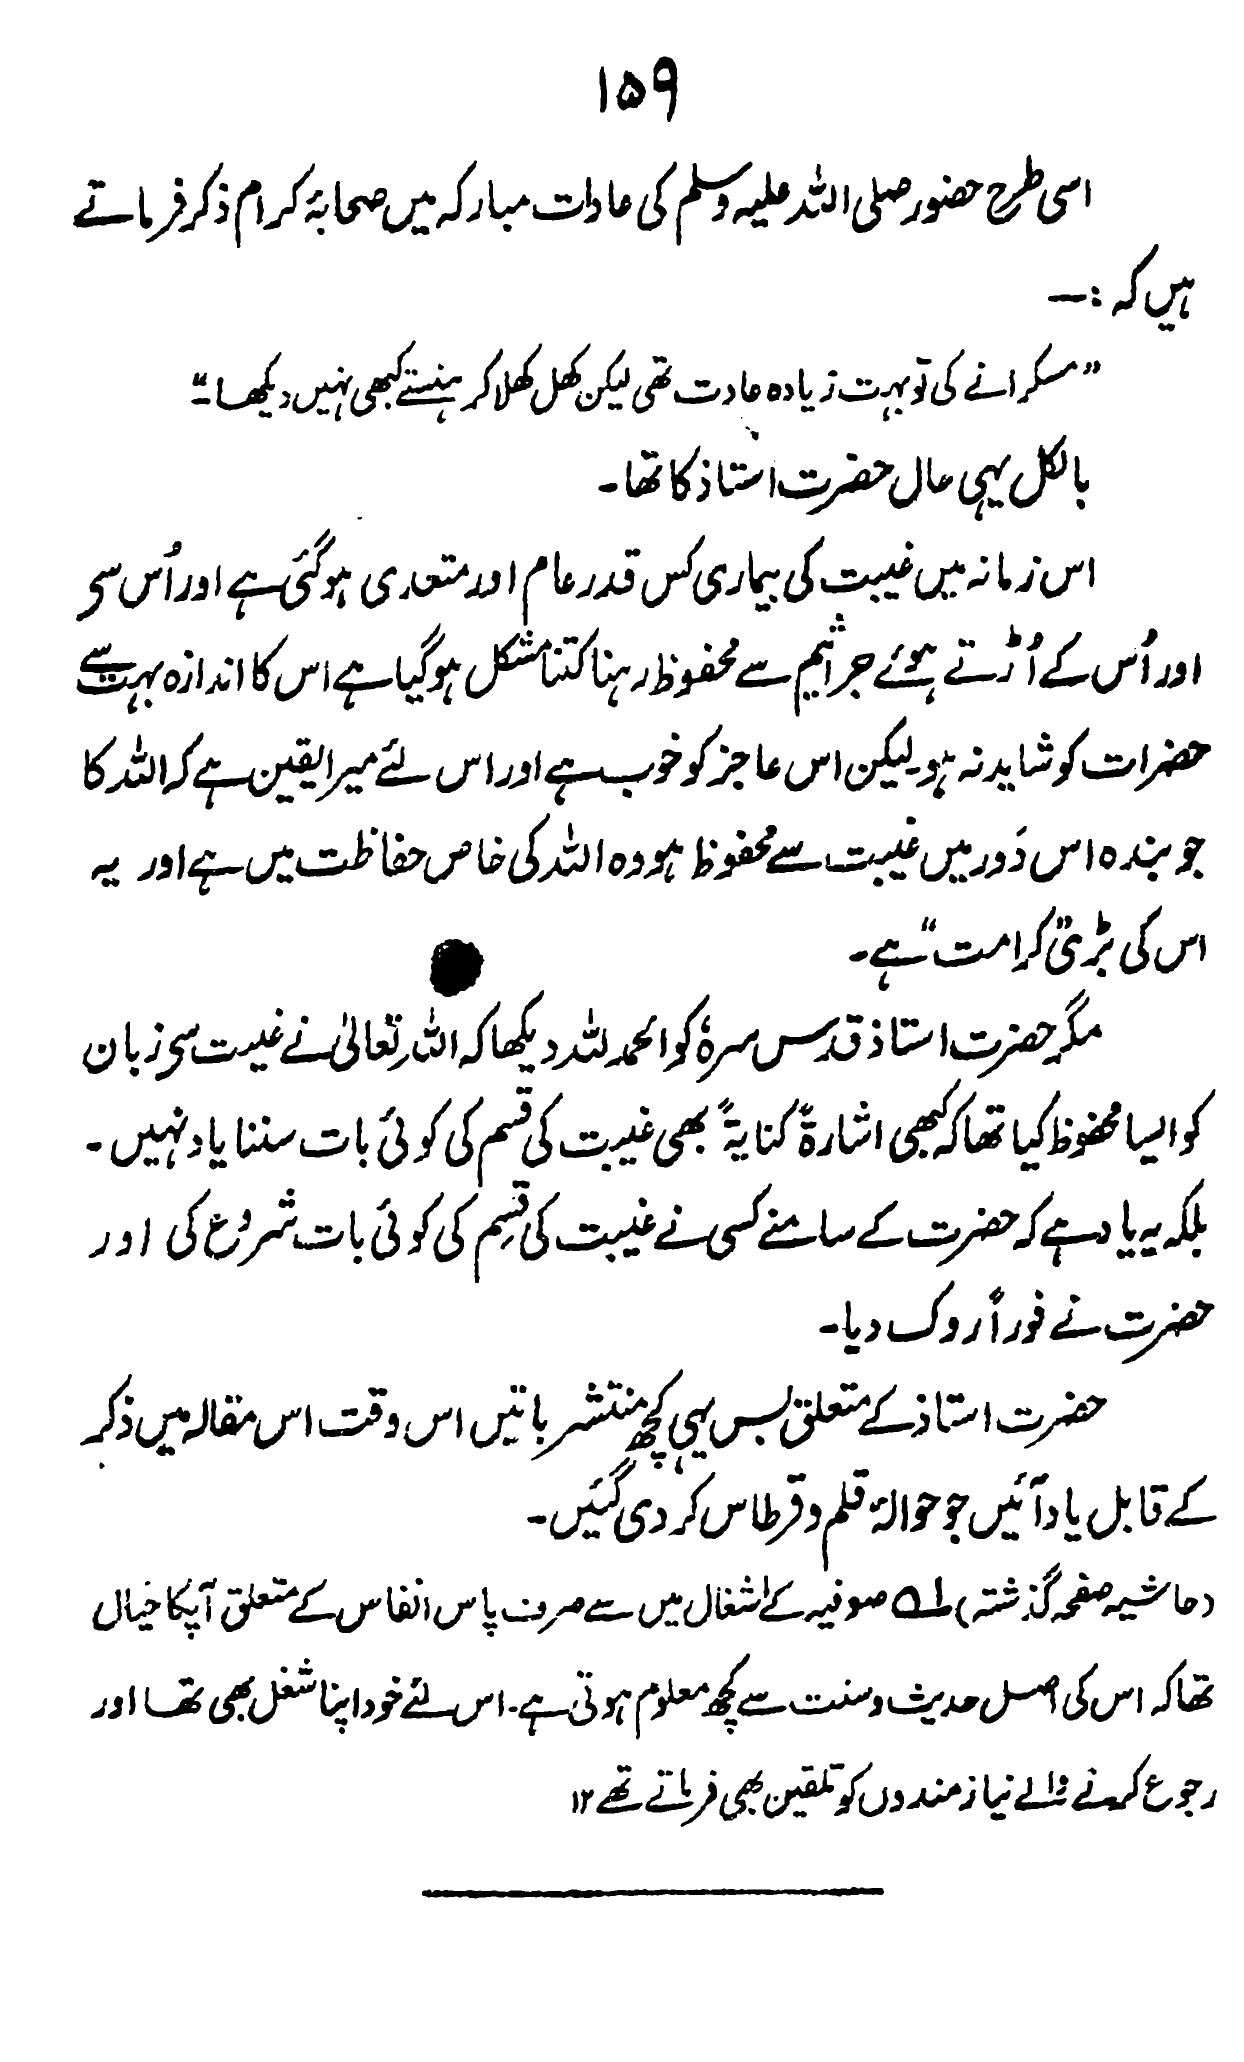 ۱۵۹
اسی طرح حضور صلی اللہ علیہ وسلم کی عادات مبارکہ میں صحابۂ کرام ذکر فرماتے
ہیں کہ :—
”مسکرانے کی تو بہت زیادہ عادت تھی لیکن کھل کھلا کر ہنستے کبھی نہیں دیکھا۔“
بالکل یہی حال حضرت استاذ کا تھا۔
اس زمانہ میں غیبت کی بیماری کس قدر عام اور متعدی ہوگئی ہے اور اُس سی
اور اُس کے اُڑتے ہوئے جراثیم سے محفوظ رہنا کتنا مشکل ہوگیا ہے اس کا اندازہ بہت سے
حضرات کو شاید نہ ہو۔ لیکن اس عاجز کو خوب ہے اور اس لئے میرا یقین ہے کہ اللہ کا
جو بندہ اس دَور میں غیبت سے محفوظ ہو وہ اللہ کی خاص حفاظت میں ہے اور یہ
اس کی بڑی ”کرامت“ ہے۔
مگر حضرت استاذ قدس سرہٗ کو الحمد للہ دیکھا کہ اللہ تعالیٰ نے غیبت سی زبان
کو ایسا محفوظ کیا تھا کہ کبھی اشارۃً کنایۃً بھی غیبت کی قسم کی کوئی بات سننا یاد نہیں۔
بلکہ یہ یاد ہے کہ حضرت کے سامنے کسی نے غیبت کی قسِم کی کوئی بات شروع کی اور
حضرت نے فوراً روک دیا۔
حضرت استاذ کے متعلق بس یہی کچھ منتشر باتیں اس وقت اس مقالہ میں ذکر
کے قابل یاد آئیں جو حوالۂ قلم و قرطاس کر دی گئیں۔
(حاشیہ صفحہ گذشتہ) لہ صوفیہ کے اشغال میں سے صرف پاس انفاس کے متعلق آپکا خیال
تھا کہ اس کی اصل حدیث و سنت سے کچھ معلوم ہوتی ہے۔ اس لئے خود اپنا شغل بھی تھا اور
رجوع کرنے والے نیاز مندوں کو تلقین بھی فرماتے تھے ۱۲